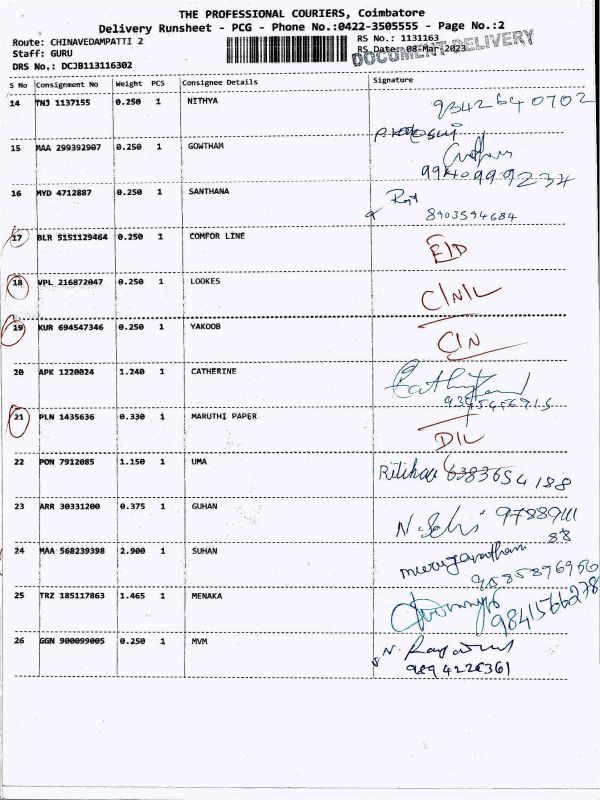 THE PROFESSIONAL COURIERS, Coimbatore
Delivery Runsheet - PCG - Phone No.:0422-3505555 - Page No.:2
Route: CHINAVEDAMPATTI 2
RS No.: 1131163
Staff: GURU
RS Date: 08-Mar-2023
DOCUMENT DELIVERY
DRS No.: DCJB113116302
S No Consignment No Weight PCS Consignee Details Signature
14 TNJ 1137155 0.250 1 NITHYA 9342640702
15 MAA 299392907 0.250 1 GOWTHAM
9940999234
16 MYD 4712887 0.250 1 SANTHANA
8903594684
17 BLR 5151129464 0.250 1 COMFOR LINE E/D
18 VPL 216872047 0.250 1 LOOKES C/N/L
19 KUR 694547346 0.250 1 YAKOOB C/N
20 APK 1220024 1.240 1 CATHERINE
21 PLN 1435636 0.330 1 MARUTHI PAPER D/L
22 PON 7912085 1.150 1 UMA 6383654188
23 ARR 30331200 0.375 1 GUHAN N. Selvi
24 MAA 568239398 2.900 1 SUHAN
9585896956
25 TRZ 185117863 1.465 1 MENAKA 9841566278
26 GGN 900099005 0.250 1 MVM